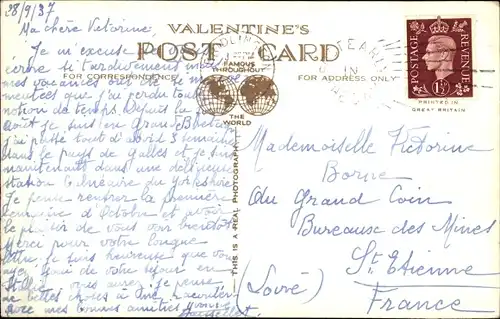 28/9/37
VALENTINE'S
POST CARD
FAMOUS THROUGHOUT
THE WORLD
FOR CORRESPONDENCE
FOR ADDRESS ONLY
POSTAGE REVENUE
1½D
PRINTED IN
GREAT BRITAIN
THIS IS A REAL PHOTOGRAPH
Ma chère Victorine
Je m'excuse de vous
si tardivement mais
mes vacances ont été
j'ai perdu toute
notion du temps. Depuis le
Août je suis en Grande Bretagne
j'ai passé tout d'abord 3 semaines
dans le pays de Galles et je suis
maintenant dans une délicieuse
station balnéaire du Yorkshire
Je pense rentrer la première
semaine d'Octobre et avoir
le plaisir de vous voir bientôt
Merci pour votre longue
lettre, je suis heureuse que vous
ayez joui de votre séjour en
Italie vous aurez je pense
de belles choses à me raconter
avec mes bonnes amitiés
Mademoiselle Victorine
Borne
du Grand Coin
Bureau des Mines
St Etienne
(Loire)
France